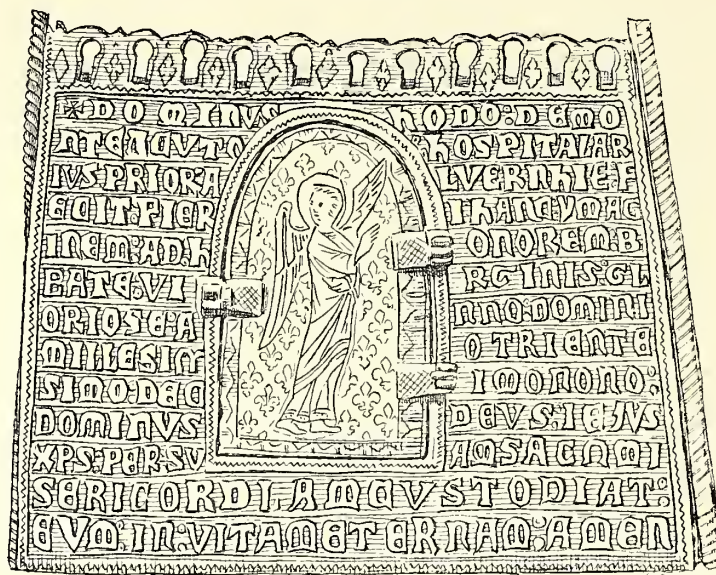 * DOMINVS HODO: DEMO
NTEACVTO HOSPITALAR
IVS: PRIOR A LVERNHIE: F
ECIT: FIER I hANC: YMAG
INEM: AD: h ONOREM: B
EATE: VI RGINIS: GL
ORIOSE: A NNO: DOMINI
MILLESIM O TRIENTE
SIMO: DEC IMONONO:
DOMINVS DEVS: IEJVS
XPS: PER SV AM SACNMI
SERICORDIAM CVSTODIAT:
EVM: IN: VITAM ETERNAM: AMEN